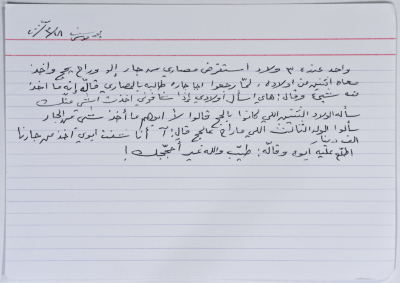 واحد عنده ٣ ولاد استقرض مصاري من جار إله وراح يحج واخذ
معاه اثنين من اولاده، لمّا رجعوا اجا جاره طالبه بالمصاري قالّه إنّه ما أخذ
منه شيئ وقالّه: هاي اسأل أولادي إذا شافوني أخذت اشي منّك
سأله الولاد الثنتين اللي كانوا بالحج قالوا لأ أبوهم ما أخذ شي من الجار
سألوا الولد الثالث اللي ما راح عالحج قال: آ أنا شفت ابوي أخذ من جارنا
الف دينار
اطلّع عليه أبوه وقالّه: طيّب والله غير أحجّجك!